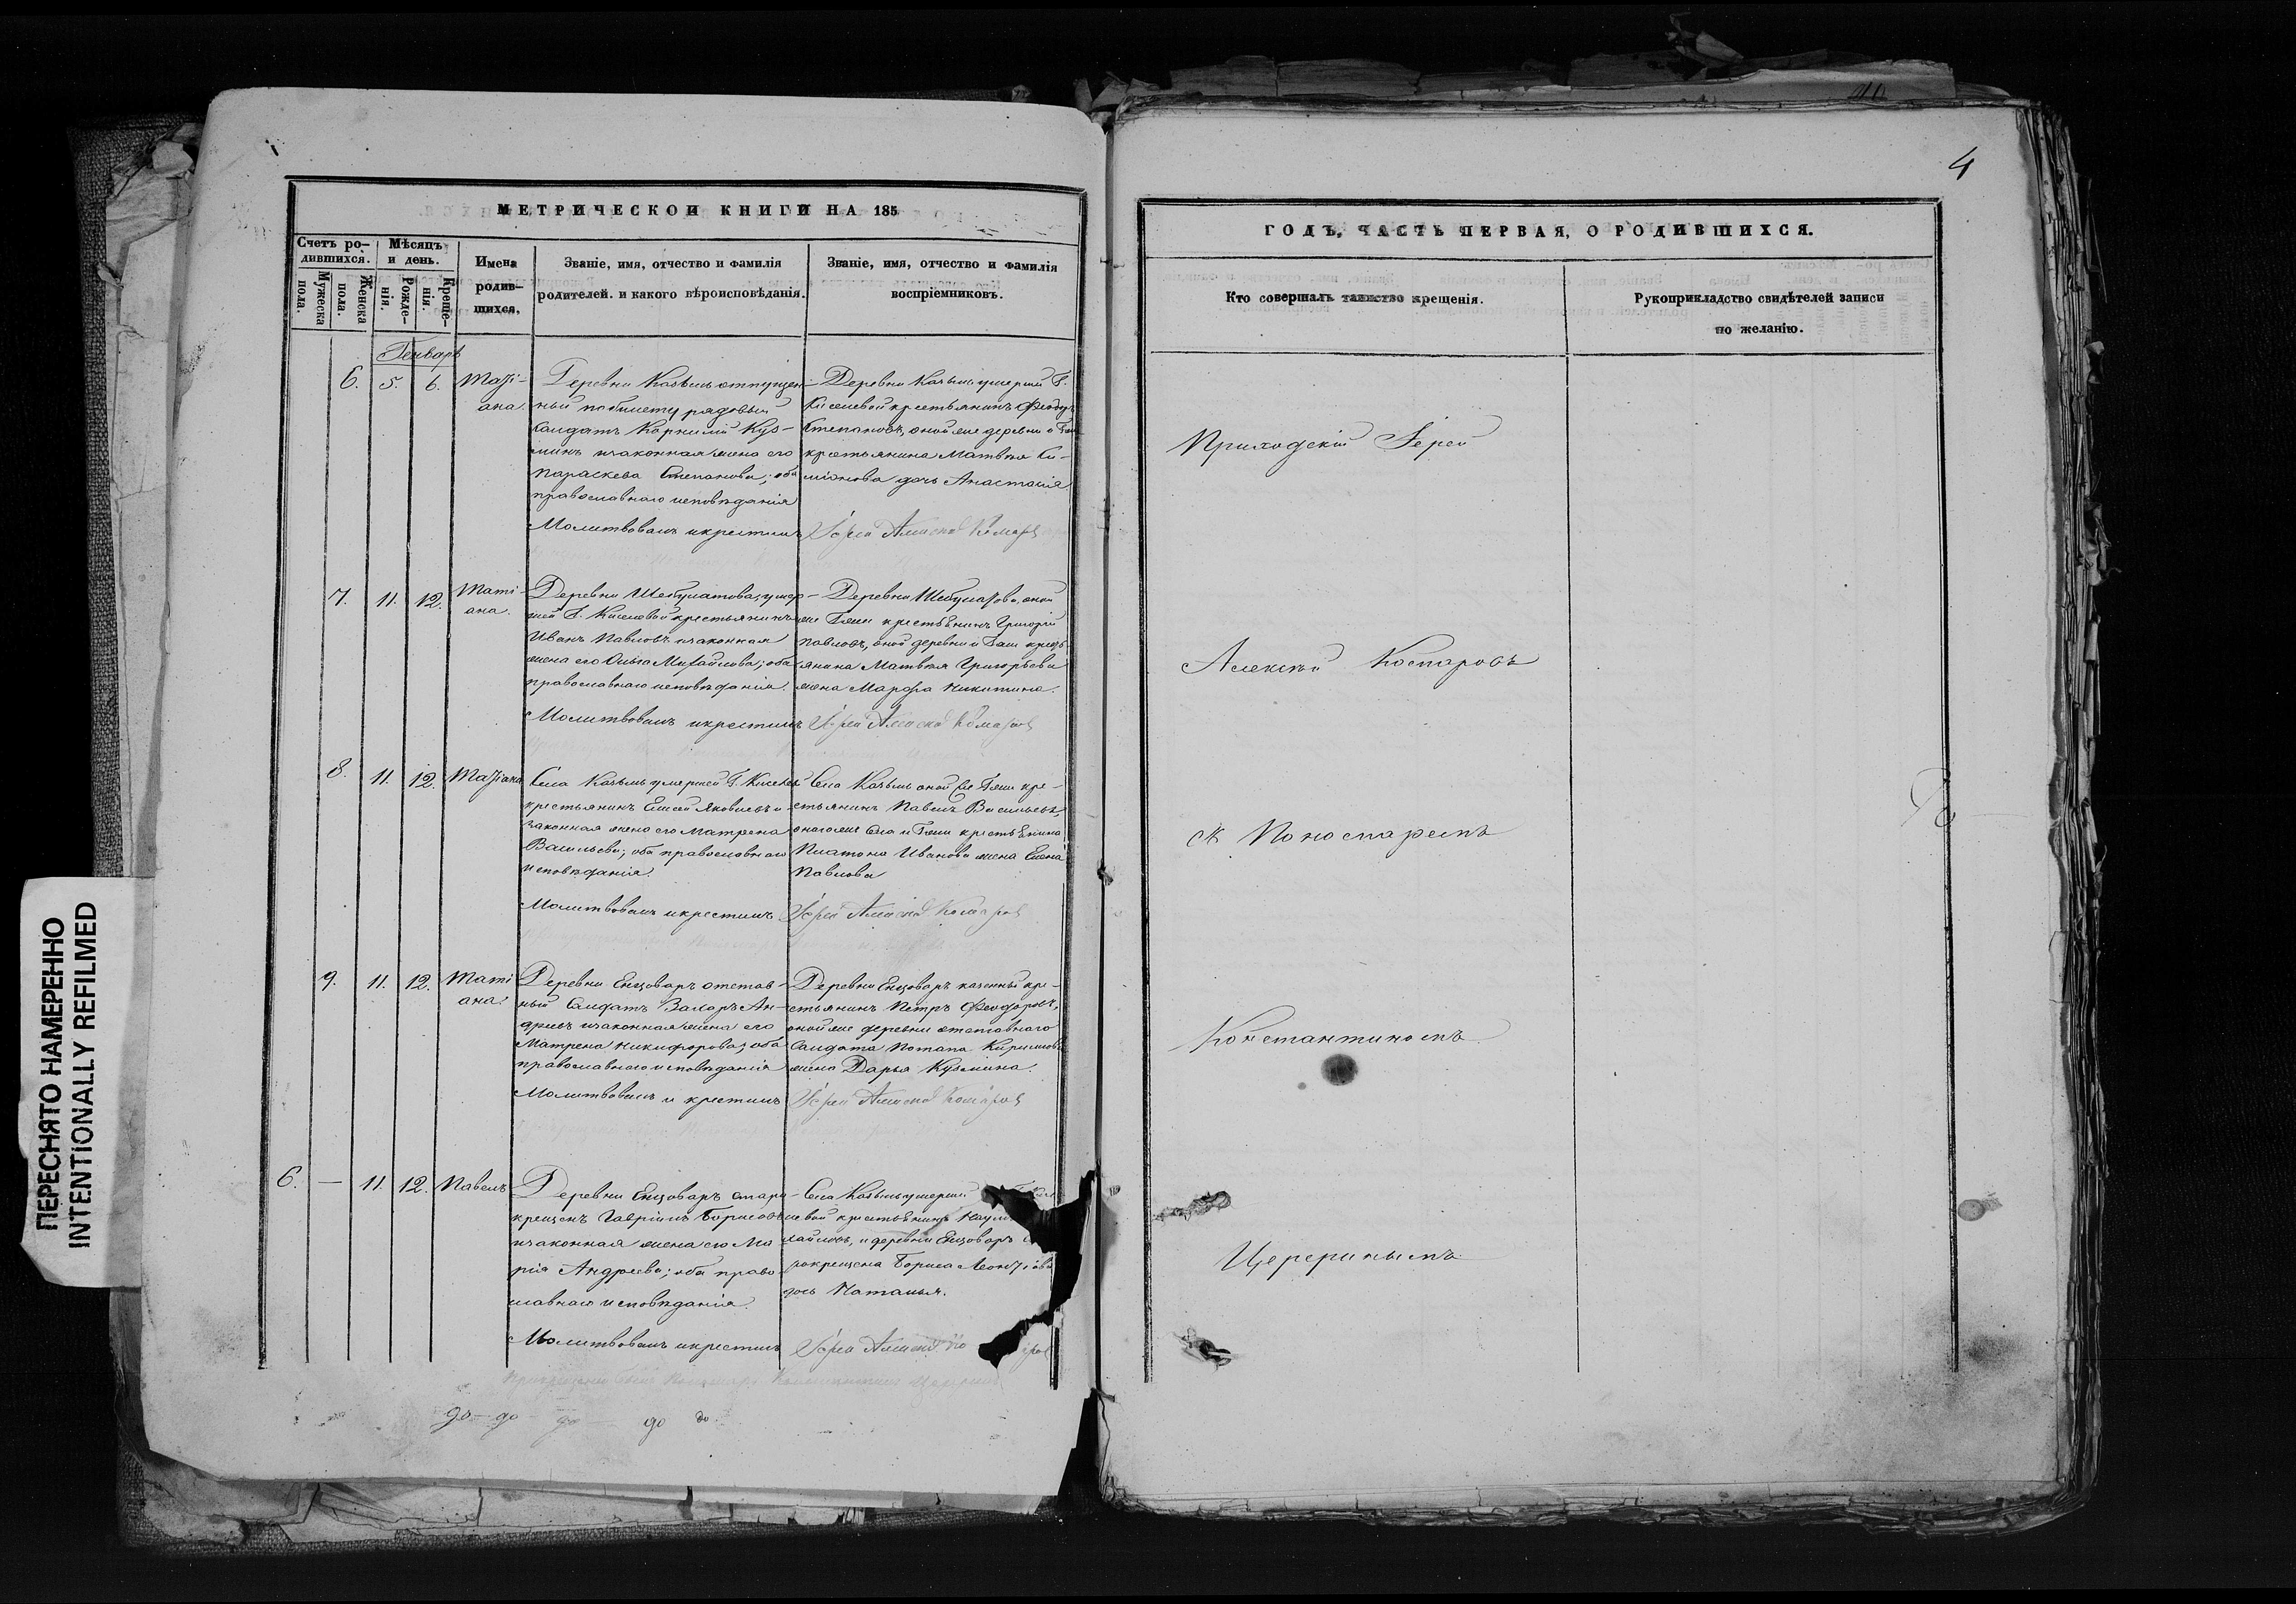 4
МЕТРИЧЕСКОЙ КНИГИ НА 185
Счетъ ро-
дившихся.
Мужеска
пола.
Женска
пола.
Мѣсяцъ
и день.
Рожде-
нія.
Креще-
нія.
Имена
родив-
шихся.
Званіе, имя, отчество и фамилія
родителей. и какого вѣроисповѣданія.
Званіе, имя, отчество и фамилія
воспріемниковъ.
Генварь
6. 5. 6.
Таті-
ана.
Деревни отпущен-
ный побилету рядовый
Солдатъ Корнилій Куз-
минъ изаконная жена его
Параскева Степанова; оба
православнаго исповѣданія
Молитвовалъ икрестилъ
Деревни умершей Г.
Киселевой крестьянинъ Феодоръ
Степановъ, оной же деревни и Гжи
крестьянина Матвѣя Си-
міонова дочь Анастасія
Іерей Алексей Комаровъ
7. 11. 12.
Таті-
ана.
Деревни умер-
шей Г. Киселевой крестьянинъ
Иванъ Павловъ изаконная
жена его Ольга Михайлова; оба
православнаго исповѣданія.
Молитвовалъ икрестилъ
Деревни оной
же Гжи крестьянинъ Григорій
Павловъ, оной деревни и Гжи кресть
янина Матвея Григорьева
жена Марфа Никитина.
Іерей Алексей Комаровъ
8. 11. 12.
Татіана
Села умершей Г. Киселевой
крестьянинъ Елисей Яковлевъ и
законная жена его Матрена
Васильева; оба православнаго
исповѣданія.
Молитвовалъ икрестилъ
Села оной же Гжи кре-
стьянинъ Павелъ Васильевъ,
онаго же Села и Гжи крестьянина
Платона Иванова жена Елена
Павлова
Іерей Алексей Комаровъ
9. 11. 12.
Таті
ана.
Деревни Енцоваръ отстав-
ный Солдатъ Захаръ Ан-
дреевъ изаконная жена его
Матрена Никифорова; оба
православнаго исповѣданія
Молитвовалъ и крестилъ
Деревни Енцоваръ казенный кре-
стьянинъ Петръ Феодоровъ,
оной же деревни отставнаго
Солдата Потапа Кириллова
жена Дарья Кузмина.
Іерей Алексей Комаровъ
6. — 11. 12.
Павелъ
Деревни Енцоваръ старо-
крещенъ Гавріилъ Борисовъ
изаконная жена его Ма
рія Андреева; оба право
славнаго исповѣданія.
Молитвовалъ икрестилъ
Села умершей
левой крестьянинъ
и деревни Енцоваръ
рокрещена Бориса Леонтіева
дочь Наталья.
Іерей Алексей
до до до до до
ГОДЪ, ЧАСТЬ ПЕРВАЯ, О РОДИВШИХСЯ.
Кто совершалъ таинство крещенія.
Рукоприкладство свидѣтелей записи
по желанію.
Приходскій Іерей
Алексѣй Комаровъ
съ Пономаремъ
Константиномъ
Цереринымъ
ПЕРЕСНЯТО НАМЕРЕННО
INTENTIONALLY REFILMED